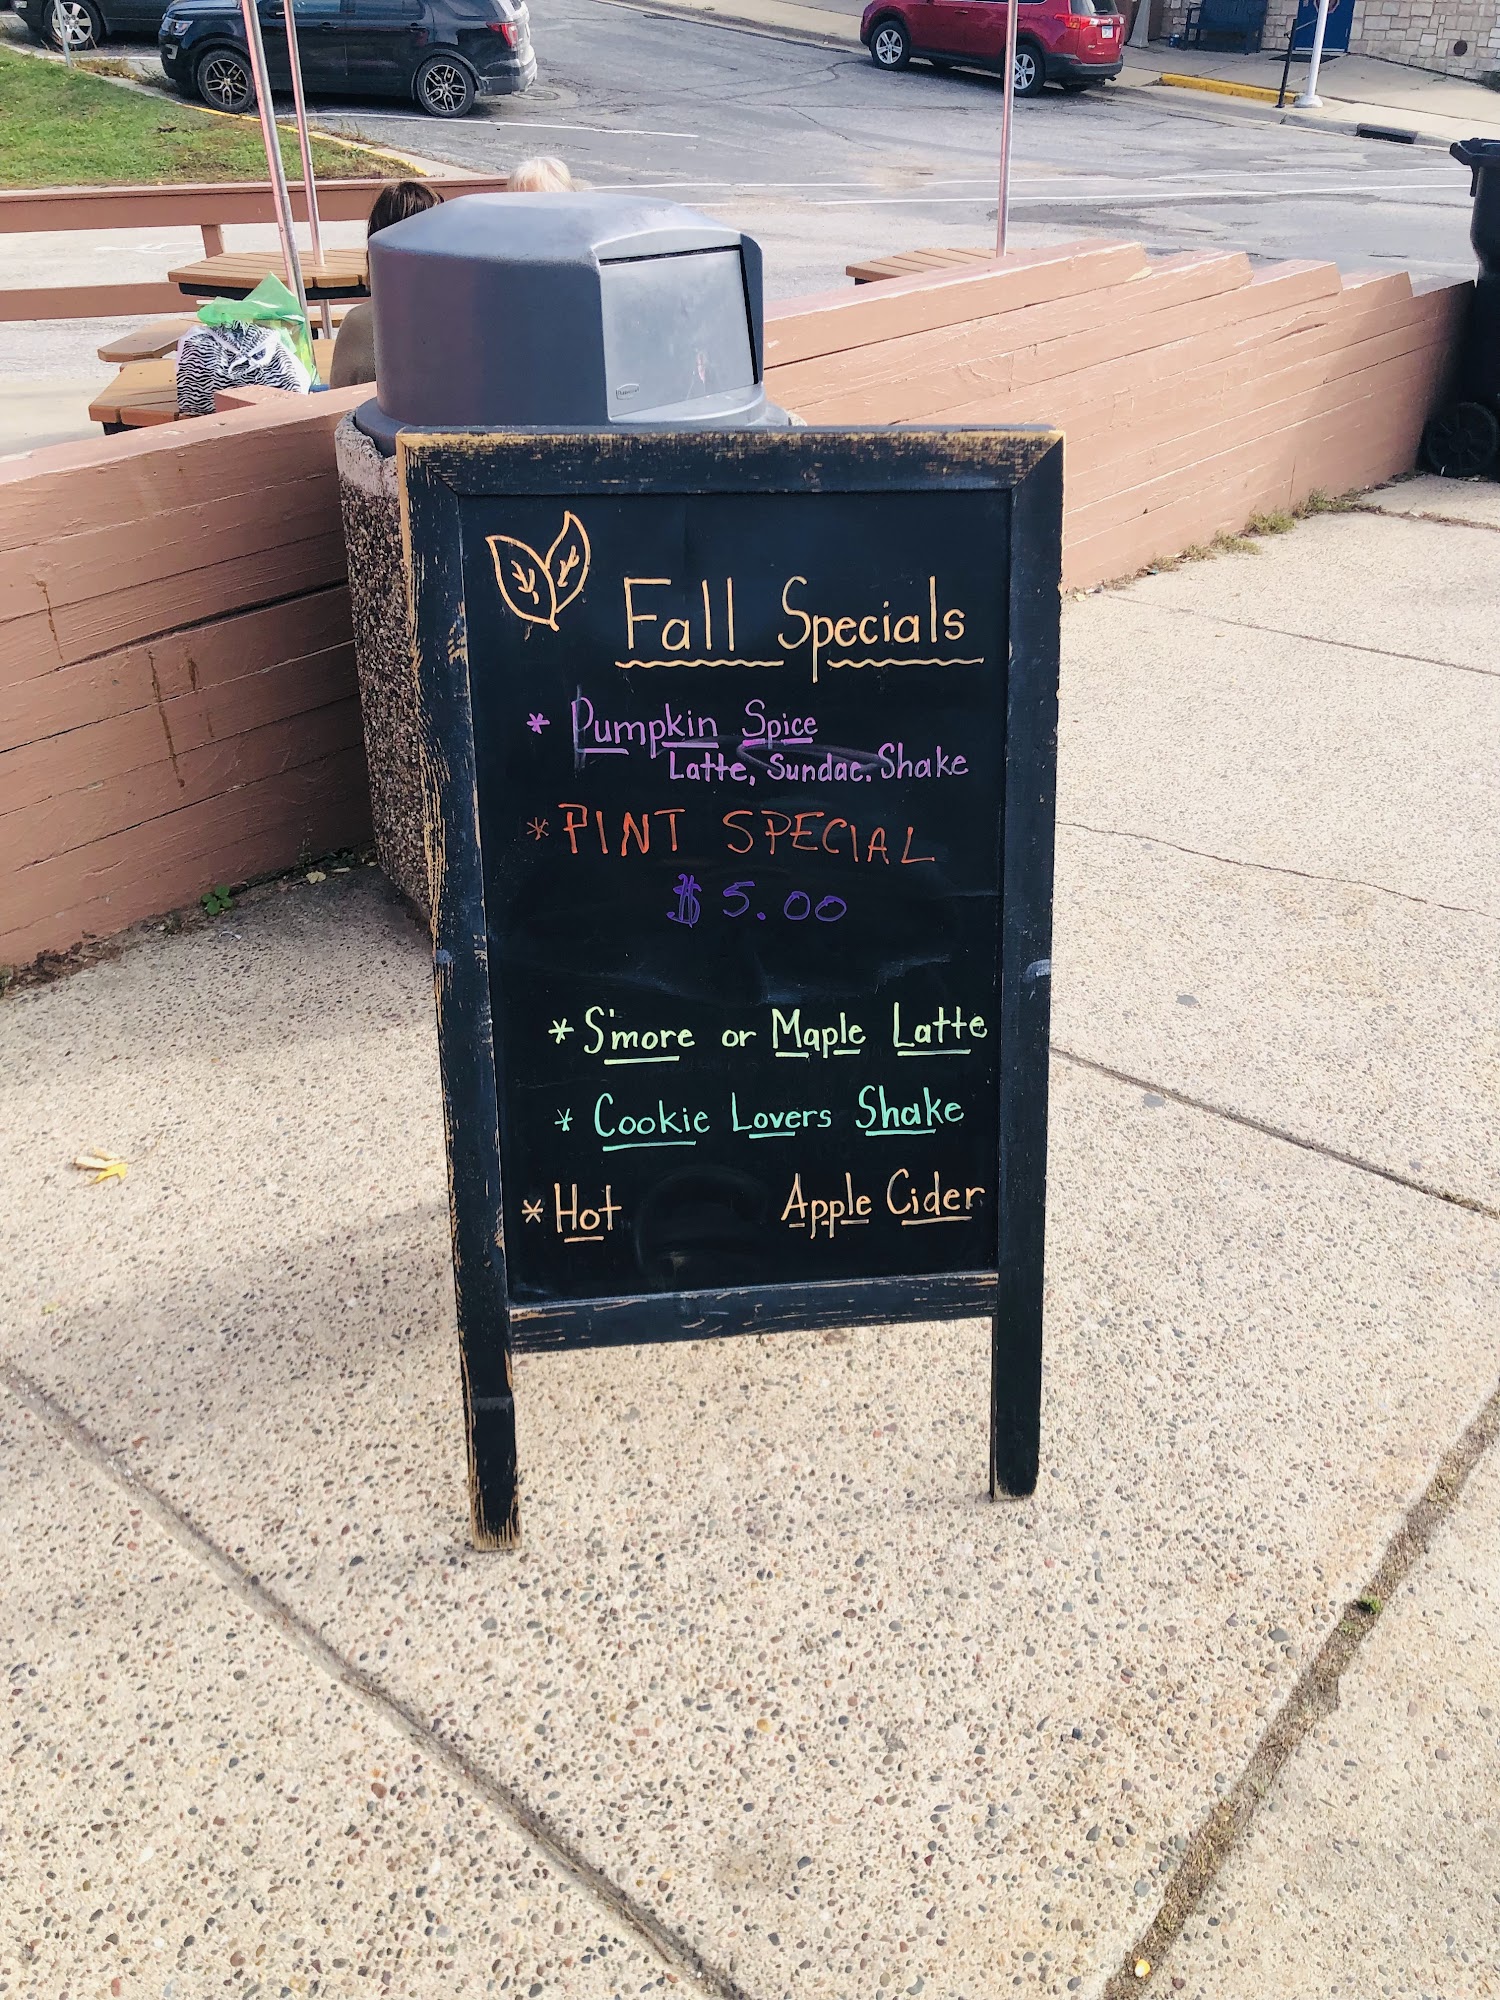 Fall Specials
* Pumpkin Spice
Latte, Sundae, Shake
* PINT SPECIAL
$5.00
* S'more or Maple Latte
* Cookie Lovers Shake
* Hot Apple Cider